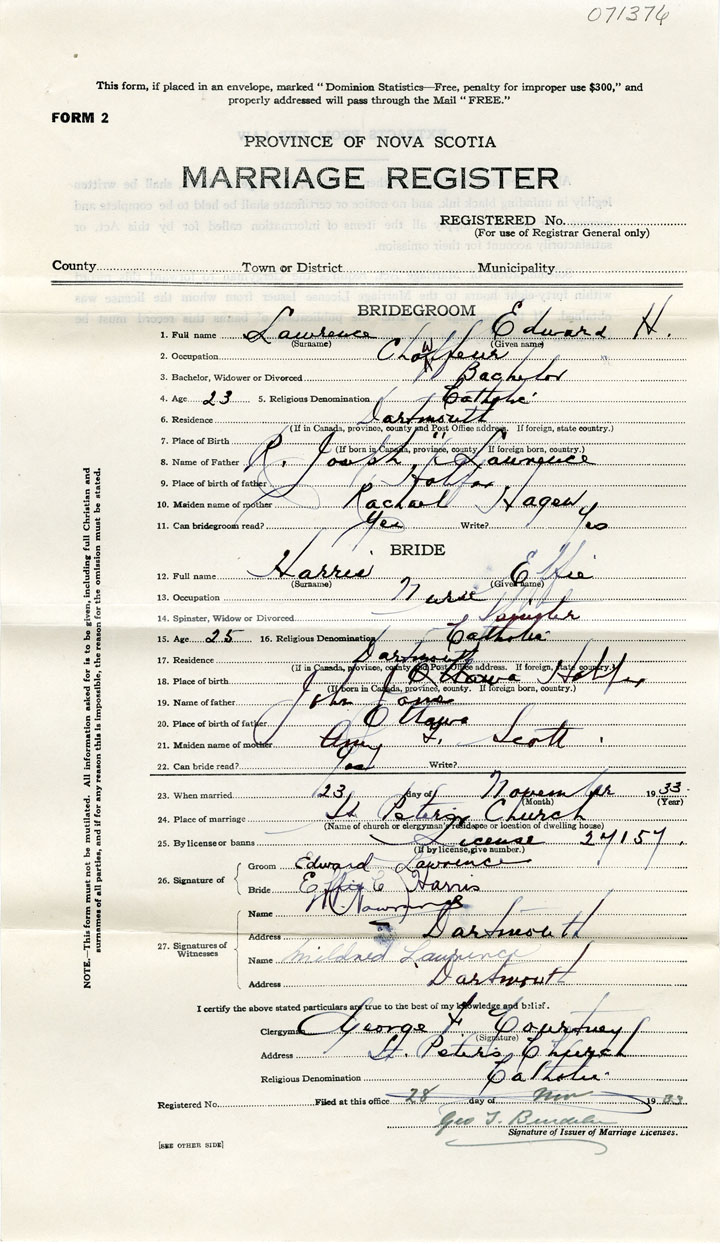 071376
This form, if placed in an envelope, marked "Dominion Statistics—Free, penalty for improper use $300," and
properly addressed will pass through the Mail "FREE."
FORM 2
PROVINCE OF NOVA SCOTIA
MARRIAGE REGISTER
REGISTERED No.
(For use of Registrar General only)
County Town or District Municipality
BRIDEGROOM
1. Full name Lawrence Edward H.
(Surname) (Given name)
2. Occupation
3. Bachelor, Widower or Divorced Bachelor
4. Age 23 5. Religious Denomination Catholic
6. Residence Dartmouth
(If in Canada, province, county and Post Office address. If foreign, state country.)
7. Place of Birth "
(If born in Canada, province, county If foreign born, country.)
8. Name of Father R. Joseph Lawrence
9. Place of birth of father Halifax
10. Maiden name of mother Rachael Hagen
11. Can bridegroom read? Yes Write? Yes
BRIDE
12. Full name Harris Effie
(Surname) (Given name)
13. Occupation Nurse
14. Spinster, Widow or Divorced Spinster
15. Age 25 16. Religious Denomination Catholic
17. Residence Dartmouth
(If in Canada, province, county and Post Office address. If foreign, state country.)
18. Place of Birth Ottawa Halifax
(If born in Canada, province, county. If foreign born, country.)
19. Name of father John
20. Place of birth of father Ottawa
21. Maiden name of mother Amy F. Scott
22. Can bride read? Yes Write?
23. When married 23 day of November 19 33
(Month) (Year)
24. Place of marriage St Peters Church
(Name of church or clergyman's residence or location of dwelling house)
25. By license or banns License 27157.
(If by license, give number.)
26. Signature of
Groom Edward Lawrence
Bride Effie C Harris
27. Signatures of Witnesses
Name
Address Dartmouth
Name Mildred Lawrence
Address Dartmouth
I certify the above stated particulars are true to the best of my knowledge and belief.
Clergyman George F. Courtney
(Signature)
Address St. Peters Church
Religious Denomination Catholic
Registered No. Filed at this office 28 day of Nov 19 33
Geo T.
Signature of Issuer of Marriage Licenses.
[SEE OTHER SIDE]
NOTE.—This form must not be mutilated. All information asked for is to be given, including full Christian and
surnames of all parties, and if for any reason this is impossible, the reason for the omission must be stated.